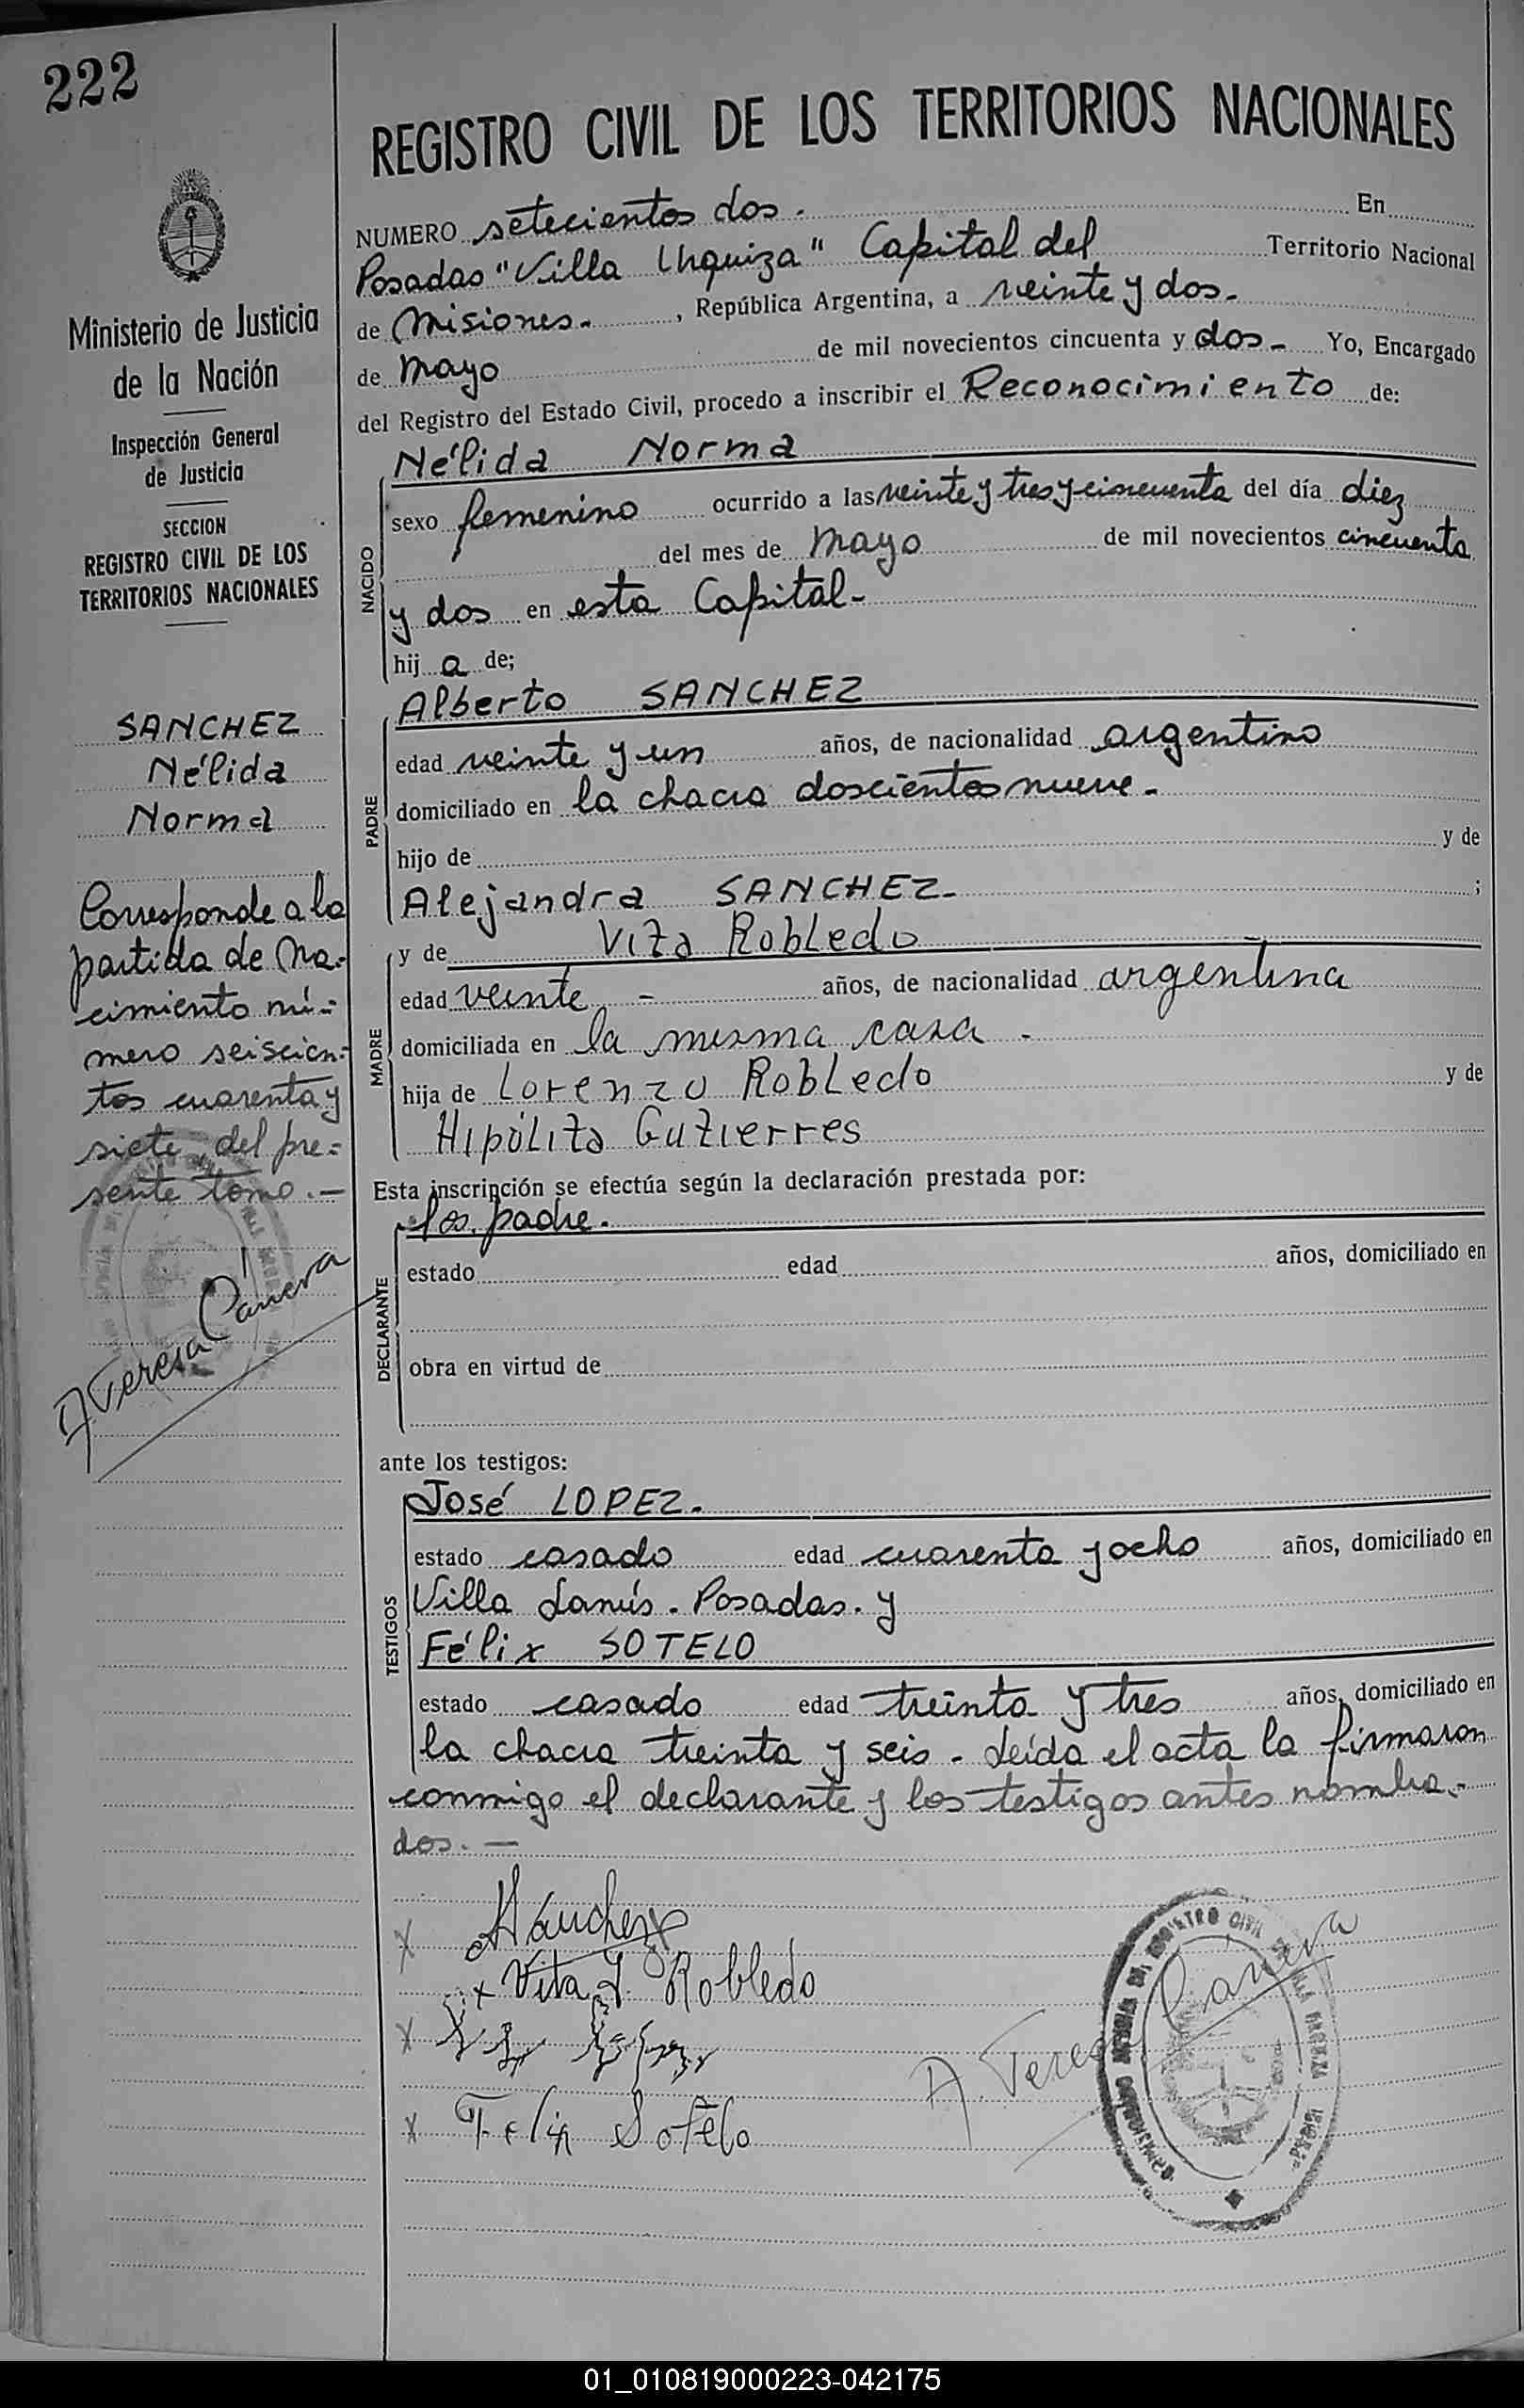 222
REGISTRO CIVIL DE LOS TERRITORIOS NACIONALES
Ministerio de Justicia
de la Nación
Inspección General
de Justicia
SECCION
REGISTRO CIVIL DE LOS
TERRITORIOS NACIONALES
SANCHEZ
Nélida
Norma
Corresponde a la
partida de Na-
cimiento nú-
mero seiscien-
tos cuarenta y
siete, del pre-
sente tomo.-
A Teresa
NUMERO setecientos dos. En
Posadas "Villa Urquiza" Capital del Territorio Nacional
de Misiones. , República Argentina, a veinte y dos.
de Mayo de mil novecientos cincuenta y dos- Yo, Encargado
del Registro del Estado Civil, procedo a inscribir el Reconocimiento de:
NACIDO
Nélida Norma
sexo femenino ocurrido a las veinte y tres y cincuenta del día diez
del mes de Mayo de mil novecientos cincuenta
y dos en esta Capital-
hij a de;
PADRE
Alberto SANCHEZ
edad veinte y un años, de nacionalidad argentino
domiciliado en la chacra doscientos nueve.
hijo de y de
Alejandra SANCHEZ- ;
MADRE
y de Vita Robledo
edad veinte - años, de nacionalidad argentina
domiciliada en la misma casa -
hija de Lorenzo Robledo y de
Hipólita Gutierres
Esta inscripción se efectúa según la declaración prestada por:
DECLARANTE
los padre.
estado edad años, domiciliado en
obra en virtud de
ante los testigos:
TESTIGOS
José LOPEZ.
estado casado edad cuarenta y ocho años, domiciliado en
Villa Lanús. Posadas. y
Félix SOTELO
estado casado edad treinta y tres años, domiciliado en
la chacra treinta y seis - Leída el acta la firmaron
conmigo el declarante y los testigos antes nombra-
dos.-
x ASanchez
x Vita Robledo
x
x Felix Sotelo
A. Teresa
01_010819000223-042175